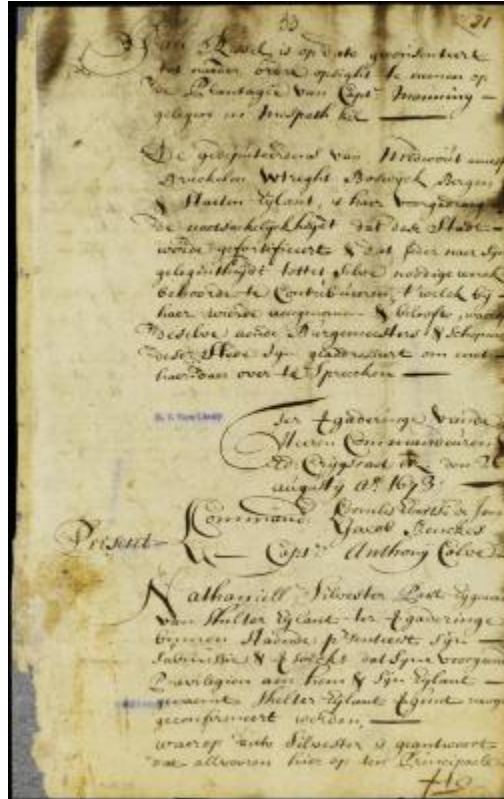 33 31
Jan is op date geconsenteert
tot naeder ordre opsight te nemen op
de Plantagie van Capt. Manning
gelegen in Mespath kil
De gedeputeerdens van Midwout
Breuckelen Wtreght Boswyck Bergen
& Staeten Eylant, is haer voorgedragen
de nootsakelyckheyt dat dese Stadt
worde gefortificeert & dat ider naer syn
gelegentheyt tottet selve nodige werck
behoorde te Contribueren, t welck by
haer wierde aengenomen & belooft,
deselve aende Burgemeesters & Schepenen
deser Stede syn geadresseert om met
haer daer over te Spreecken
Ter Vergaderinge vande
Heeren Commandeuren
Ed. Crygsraet den
augusty Ao. 1673.
Present Command. Cornelis Evertse de Jonge
Jacob Benckes
Capt. Anthony Colve
Nathaniell Silvester Part Eygenaer
van Shelter Eylant ter Vergaderinge
binnen Staende presenteert Syn
Submissie & versoeckt dat Syne voorgaende
Previlegien aen hem & Syn Eylant
genaemt Shelter Eylant
geconfirmeert werden,
waerop Silvester is geantwoort
dat alvooren hier op ten Principale